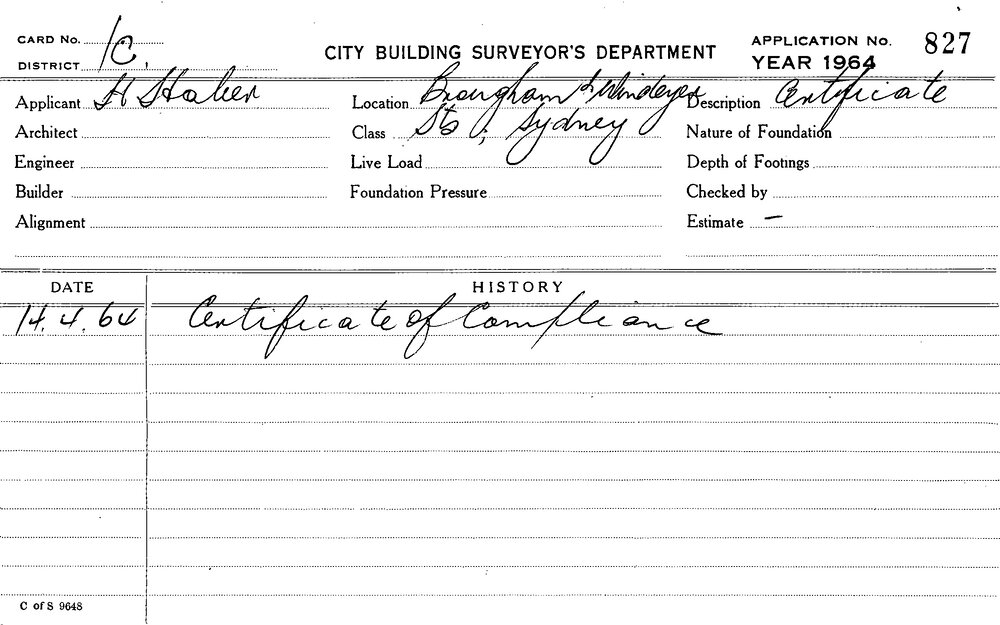 CARD No. 1C.
DISTRICT
CITY BUILDING SURVEYOR'S DEPARTMENT
APPLICATION No. 827
YEAR 1964
Applicant H
Location Brougham & Windeyer
Description Certificate
Architect
Class Sts, Sydney
Nature of Foundation
Engineer
Live Load
Depth of Footings
Builder
Foundation Pressure
Checked by
Alignment
Estimate –
DATE
HISTORY
14.4.64 Certificate of Compliance
C of S 9648